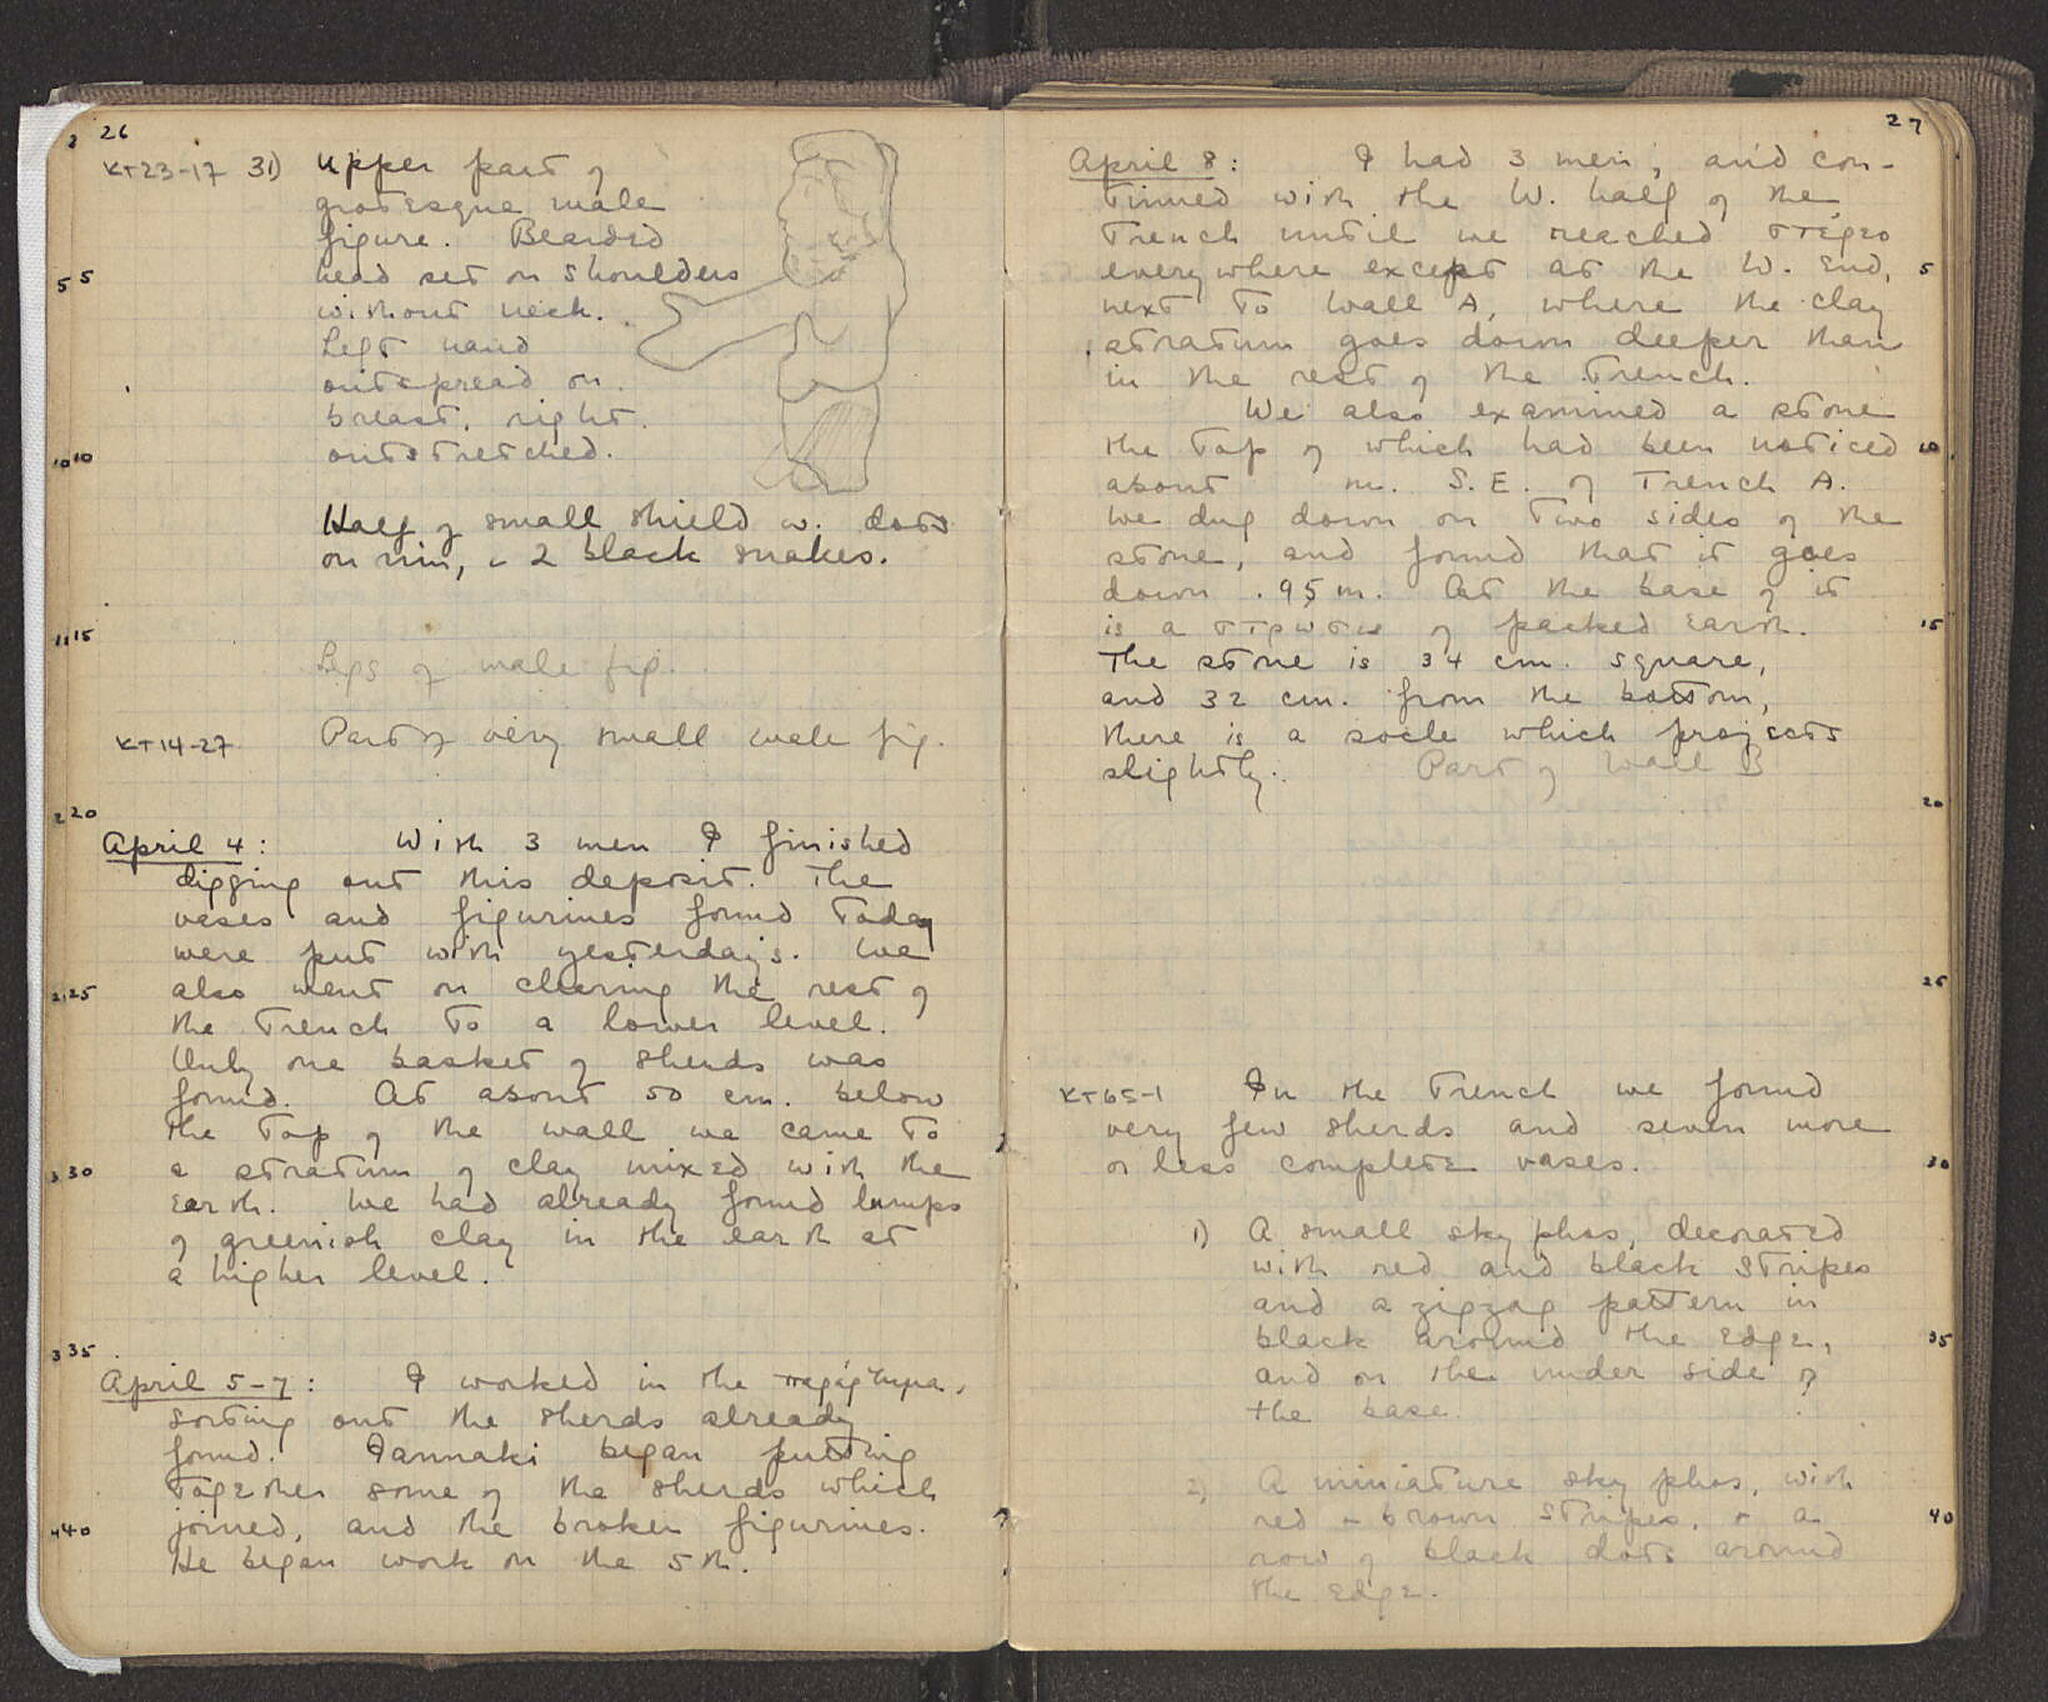 26
KT23-17 31) Upper part of
grotesque male
figure. Bearded
head set on shoulders
5 5
without neck.
Left hand
outspread on
breast, right
outstretched.
10 10
Half of small shield w. dots
on rim, + 2 black snakes.
15
Legs of male fig.
KT14-27 Part of very small male fig.
20
April 4: With 3 men I finished
digging out this deposit. The
vases and figurines found today
were put with yesterday's. We
also went on clearing the rest of
25
the trench to a lower level.
Only one basket of sherds was
found. At about 50 cm. below
the top of the wall we came to
a stratum of clay mixed with the
30
earth. We had already found lumps
of greenish clay in the earth at
a higher level.
35
April 5-7: I worked in the παράρτημα,
sorting out the sherds already
found. Iannaki began putting
together some of the sherds which
joined, and the broken figurines.
40
He began work on the 5th.
27
April 8: I had 3 men, and con-
tinued with the W. half of the
trench until we reached στερεο
everywhere except at the W. end,
5
next to Wall A, where the clay
stratum goes down deeper than
in the rest of the trench.
We also examined a stone
the top of which had been noticed
10
about m. S.E. of Trench A.
We dug down on two sides of the
stone, and found that it goes
down .95 m. At the base of it
is a στρωσις of packed earth.
15
The stone is 34 cm. square,
and 32 cm. from the bottom,
there is a socle which projects
slightly. Part of Wall B
20
25
KT65-1 In the trench we found
very few sherds and seven more
or less complete vases.
30
1) A small skyphos, decorated
with red and black stripes
and a zigzag pattern in
black around the edge,
35
and on the under side of
the base.
2) A miniature skyphos, with
red + brown stripes, + a
40
row of black dots around
the edge.